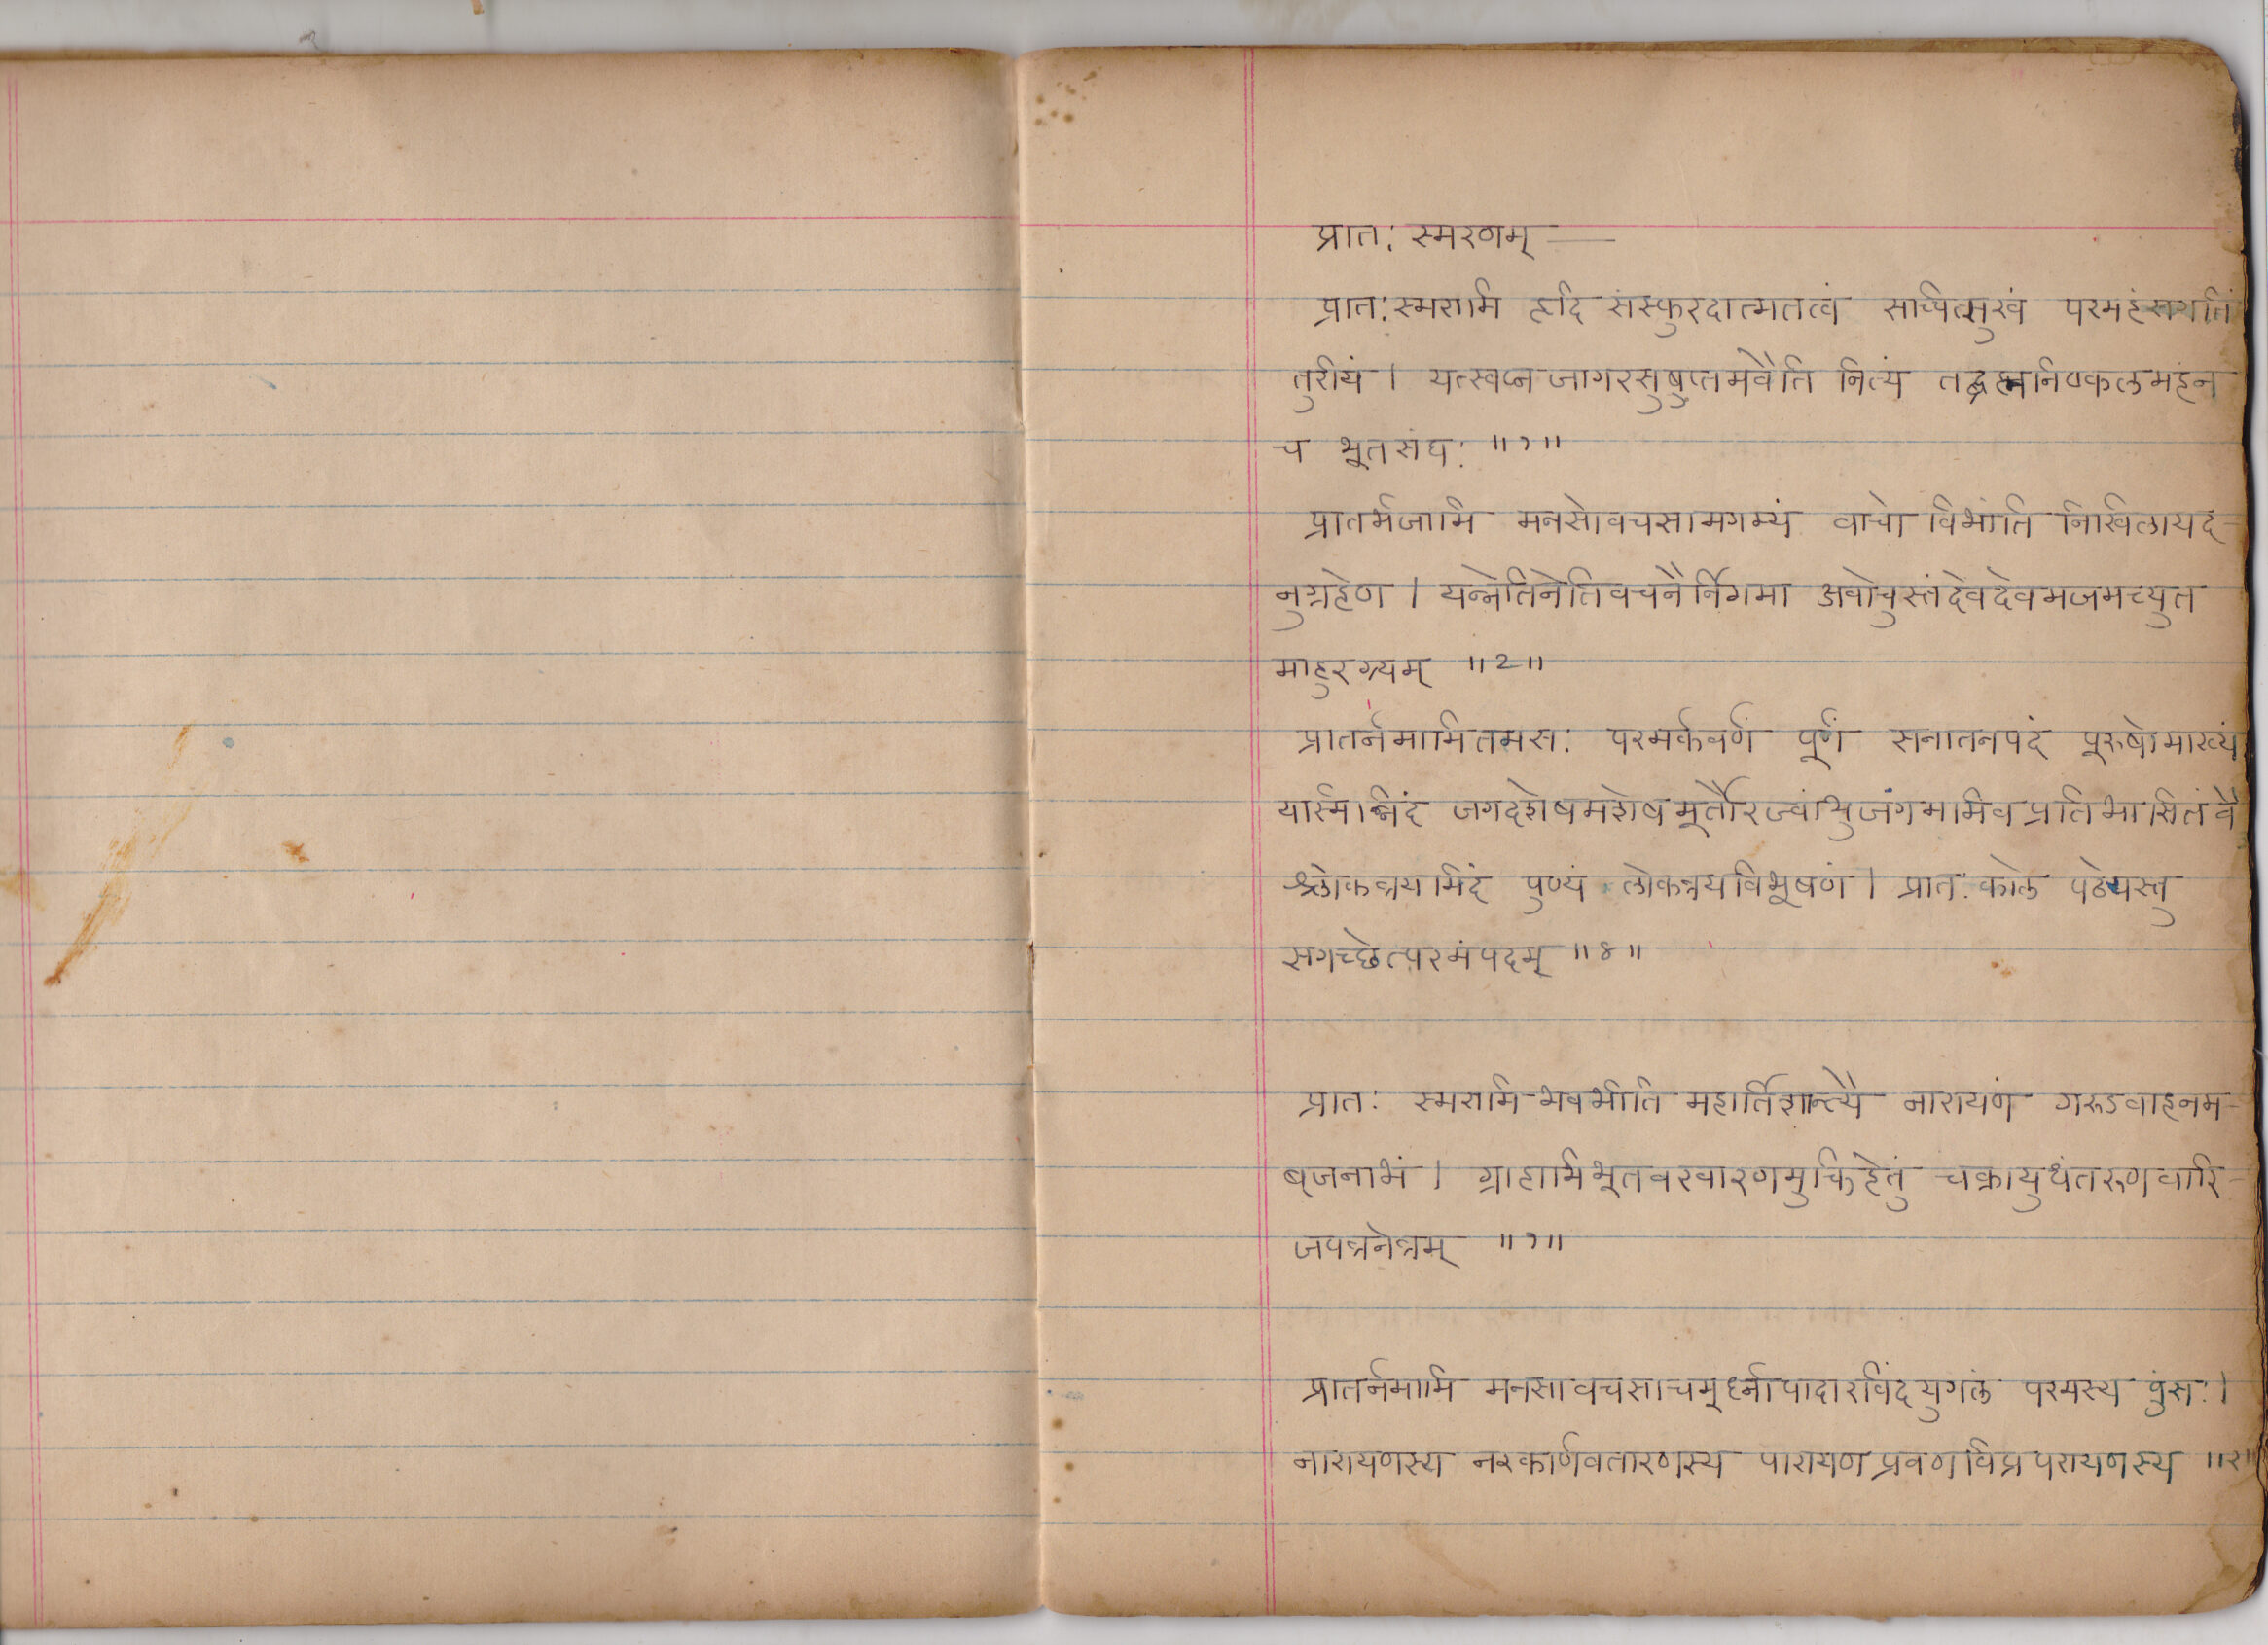 प्रातः स्मरणम् —
प्रातःस्मरामि हृदि संस्फुरदात्मतत्वं सच्चित्सुखं परमहंसगतिं
तुरीयं । यत्स्वप्नजागरसुषुप्तमवैति नित्यं तद्ब्रह्मनिष्कलमहंन
च भूतसंघः ॥१॥
प्रातर्भजामि मनसोवचसामगम्यं वाचो विभांति निखिलायद-
नुग्रहेण । यन्नेतिनेतिवचनैर्निगमा अवोचुस्तंदेवदेवमजमच्युत
माहुरग्र्यम् ॥2॥
प्रातर्नमामितमसः परमर्कवर्णं पूर्णं सनातनपदं पुरुषोमाख्यं
यस्मिन्निदं जगदशेषमशेषमूर्तौरज्वांभुजंगममिव प्रतिभासितं वै
श्लोकत्रयमिदं पुण्यं लोकत्रयविभूषणं । प्रातःकाले पठेद्यस्तु
सगच्छेत्परमंपदम् ॥४॥
प्रातः स्मरामि भवभीति महार्तिशान्त्यै नारायणं गरुडवाहनम-
ब्जनाभं । ग्राहाभिभूतवरवारणमुक्तिहेतुं चक्रायुधंतरुणवारि-
जपत्रनेत्रम् ॥१॥
प्रातर्नमामि मनसावचसाचमूर्ध्नापादारविंदयुगलं परमस्य पुंसः ।
नारायणस्य नरकार्णवतारणस्य पारायणप्रवणविप्रपरायणस्य ॥२॥